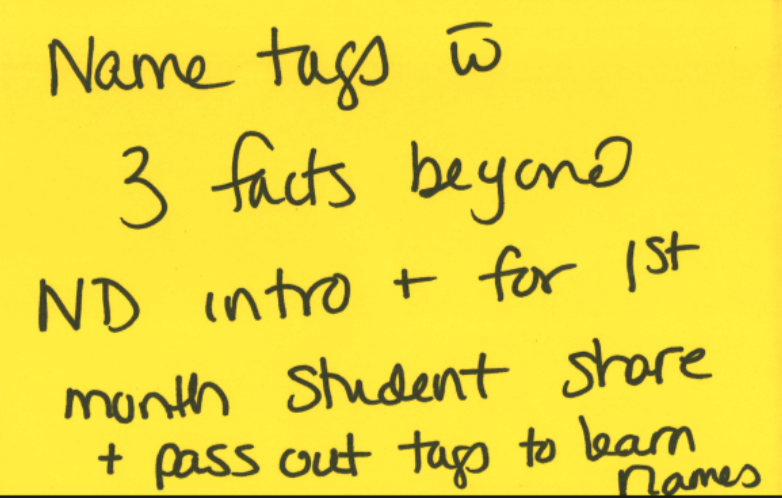 Name tags w̅
3 facts beyond
ND intro + for 1st
month student share
+ pass out tags to learn
names